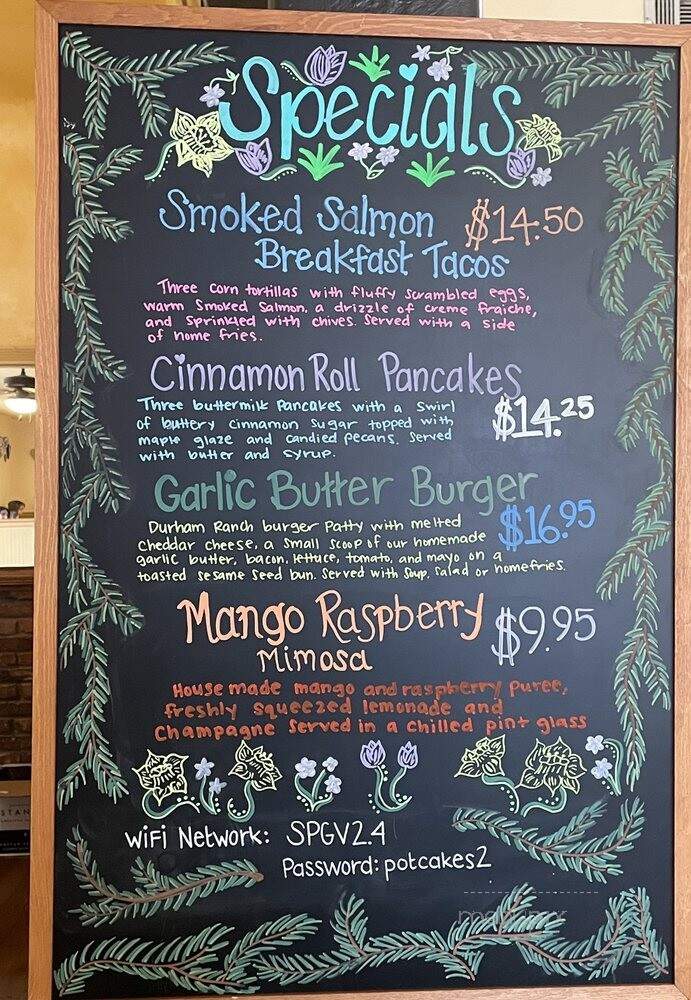 Specials
Smoked Salmon $14.50
Breakfast Tacos
Three corn tortillas with fluffy scrambled eggs,
warm Smoked Salmon, a drizzle of creme fraiche,
and sprinkled with chives. Served with a side
of home fries.
Cinnamon Roll Pancakes
Three buttermilk pancakes with a swirl
of buttery cinnamon sugar topped with
maple glaze and candied pecans. Served
with butter and syrup.
$14.25
Garlic Butter Burger
Durham Ranch burger patty with melted
cheddar cheese, a small scoop of our homemade
garlic butter, bacon, lettuce, tomato, and mayo on a
toasted sesame seed bun. Served with Soup, Salad or homefries.
$16.95
Mango Raspberry $9.95
Mimosa
House made mango and raspberry puree,
freshly squeezed lemonade and
Champagne served in a chilled pint glass
WiFi Network: SPGV2.4
Password: potcakes2
STAN